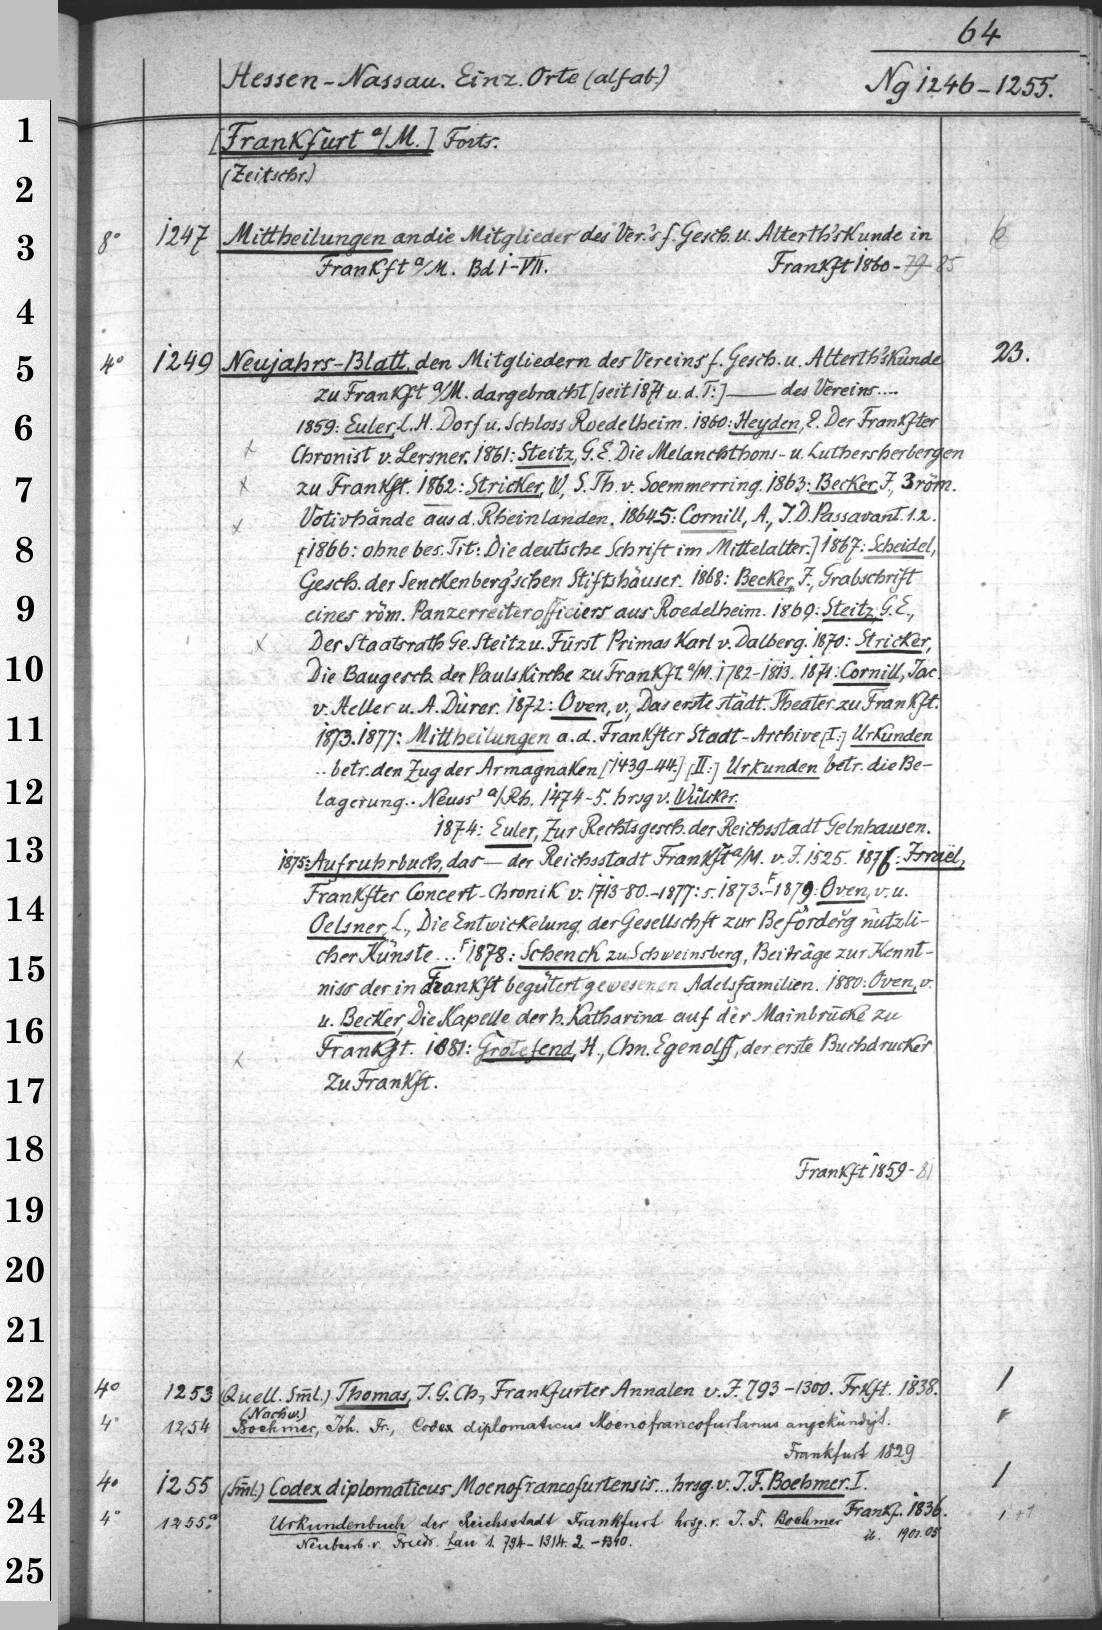 64
Hessen-Nassau. Einz. Orte (alfab.) Ng 1246-1255.
1
[Frankfurt a/M.] Forts.
(Zeitschr.)
2
3
8° 1247 Mittheilungen an die Mitglieder des Ver.'s f. Gesch. u. Alterth'skunde in
Frankft a/M. Bd 1-VII. Frankft 1860-79-85
4
5
4° 1249 Neujahrs-Blatt, den Mitgliedern des Vereins f. Gesch. u. Alterth'skunde 23.
zu Frankft a/M. dargebracht [seit 1871 u. d. T:] —— des Vereins....
6
1859: Euler, L. H. Dorf u. Schloss Roedelheim. 1860: Heyden, E. Der Frankfter
x Chronist v. Lersner. 1861: Steitz, G. E. Die Melanchthons- u. Luthersherbergen
7
x zu Frankft. 1862: Stricker, W, S. Th. v. Soemmerring. 1863: Becker, F., 3 röm.
x Votivhände aus d. Rheinlanden. 1864.5: Cornill, A., J. D. Passavant. 1.2.
8
[1866: ohne bes. Tit: Die deutsche Schrift im Mittelalter.] 1867: Scheidel,
Gesch. der Senckenberg'schen Stiftshäuser. 1868: Becker, F., Grabschrift
9
eines röm. Panzerreiterofficiers aus Roedelheim. 1869: Steitz, G. E.,
x Der Staatsrath Ge. Steitz u. Fürst Primas Karl v. Dalberg. 1870: Stricker,
10
Die Baugesch. der Paulskirche zu Frankft. a/M. 1782-1813. 1871: Cornill, Jac.
v. Heller u. A. Dürer. 1872: Oven, v., Das erste städt. Theater zu Frankft.
11
1873. 1877: Mittheilungen a. d. Frankfter Stadt-Archive [I:] Urkunden
.. betr. den Zug der Armagnaken [1439-44.] [II:] Urkunden betr. die Be-
12
lagerung.. Neuss' a/Rh. 1474-5. hrsg v. Wülcker.
1874: Euler, Zur Rechtsgesch. der Reichsstadt Gelnhausen.
13
1875: Aufruhrbuch, das — der Reichsstadt Frankft a/M. v. J. 1525. 1876: Israël,
Frankfter Concert-Chronik v. 1713-80. -1877: s. 1873. -1879: Oven, v. u.
14
Oelsner, L., Die Entwickelung der Gesellschft zur Beförderg nützli-
cher Künste ... 1878: Schenck zu Schweinsberg, Beiträge zur Kennt-
15
niss der in Frankft begütert gewesenen Adelsfamilien. 1880: Oven, v.
u. Becker, Die Kapelle der h. Katharina auf der Mainbrücke zu
16
x Frankft. 1881: Grotefend, H., Chn. Egenolff, der erste Buchdrucker
zu Frankft.
17
18
Frankft 1859-81
19
20
21
22
4° 1253 (Quell. Sml.) Thomas, J. G. Ch., Frankfurter Annalen v. J. 793-1300. Frkft. 1838. 1
(Nachw.)
4° 1254 Boehmer, Joh. Fr., Codex diplomaticus Moenofrancofurtanus angekündigt.
23
Frankfurt 1829
4° 1255 (Sml.) Codex diplomaticus Moenofrancofurtensis... hrsg. v. J. F. Boehmer. I. 1
24
Frankf. 1836.
4° 1255.a Urkundenbuch der Reichsstadt Frankfurt hrsg. v. J. F. Boehmer 1 +1
Neubearb. v. Friedr. Lau 1. 794-1314. 2. -1340. ib. 1901.05
25